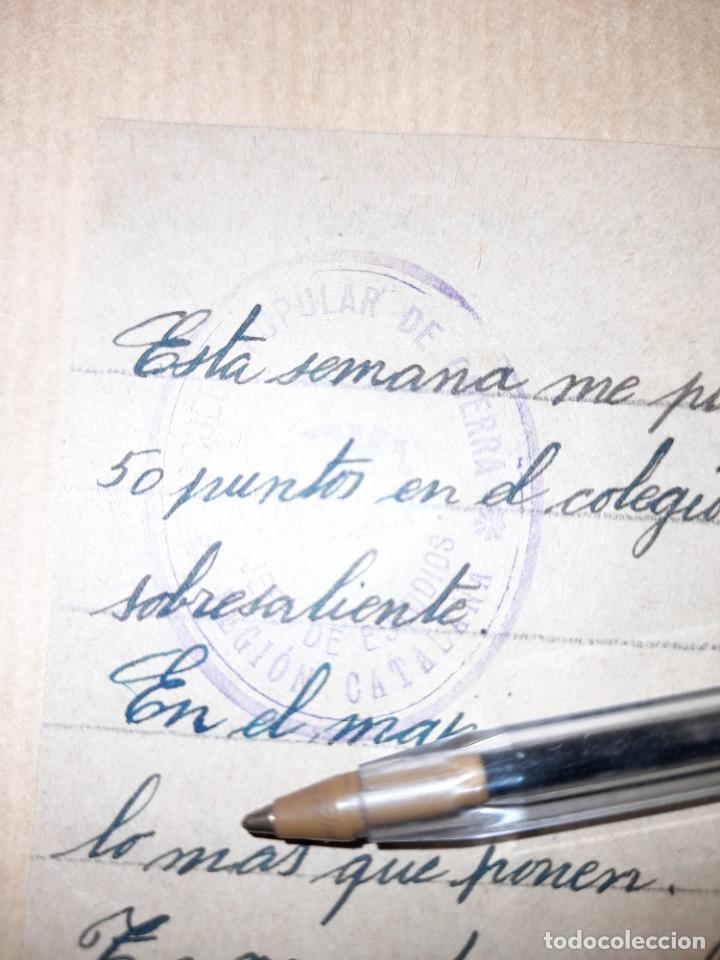 Esta semana me
50 puntos en el colegio
sobresaliente.
En el
lo mas que ponen.
POPULAR DE GUERRA
JEFE DE ESTUDIOS
REGIÓN CATALANA
todocoleccion